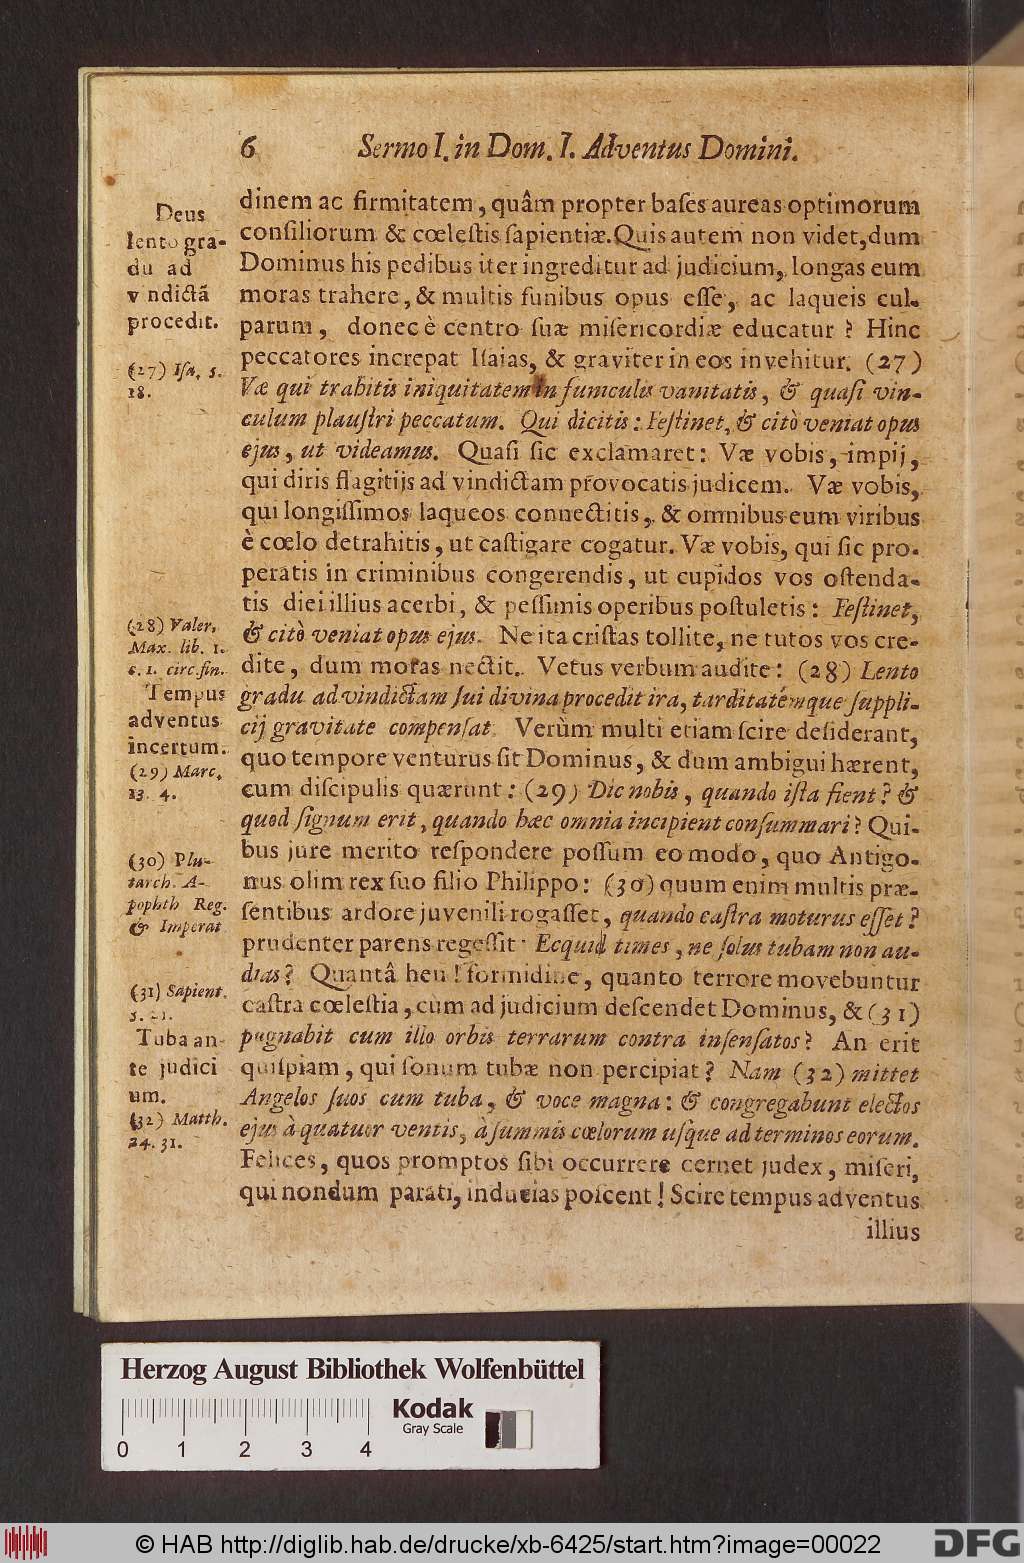 6 Sermo I. in Dom. I. Adventus Domini.
Deus
lento gra-
du ad
v ndictã
procedit.
(27) Isa. 5.
18.
(28) Valer.
Max. lib. 1.
c. 1. circ. fin.
Tempus
adventus
incertum.
(29) Marc.
13. 4.
(30) Plu-
tarch. A-
pophth Reg.
& Imperat
(31) Sapient.
5. 21.
Tuba an-
te judici
um.
(32) Matth.
24. 31.
dinem ac firmitatem, quâm propter baſes aureas optimorum
conſiliorum & cœleſtis ſapientiæ. Quis autem non videt, dum
Dominus his pedibus iter ingreditur ad judicium, longas eum
moras trahere, & multis funibus opus eſſe, ac laqueis cul-
parum, donec è centro ſuæ miſericordiæ educatur? Hinc
peccatores increpat Iſaias, & graviter in eos invehitur. (27)
Væ qui trahitis iniquitatem in funiculis vanitatis, & quaſi vin-
culum plauſtri peccatum. Qui dicitis: Feſtinet, & citò veniat opus
ejus, ut videamus. Quaſi ſic exclamaret: Væ vobis, impij,
qui diris flagitijs ad vindictam provocatis judicem. Væ vobis,
qui longiſſimos laqueos connectitis, & omnibus eum viribus
è cœlo detrahitis, ut caſtigare cogatur. Væ vobis, qui ſic pro-
peratis in criminibus congerendis, ut cupidos vos oſtenda-
tis diei illius acerbi, & peſſimis operibus poſtuletis: Feſtinet,
& citò veniat opus ejus. Ne ita criſtas tollite, ne tutos vos cre-
dite, dum moras nectit. Vetus verbum audite: (28) Lento
gradu ad vindictam ſui divina procedit ira, tarditatémque ſuppli-
cij gravitate compenſat. Verùm multi etiam ſcire deſiderant,
quo tempore venturus ſit Dominus, & dum ambigui hærent,
cum diſcipulis quærunt: (29) Dic nobis, quando iſta fient? &
quod ſignum erit, quando hæc omnia incipient conſummari? Qui-
bus jure merito reſpondere poſſum eo modo, quo Antigo-
nus olim rex ſuo filio Philippo: (30) quum enim multis præ-
ſentibus ardore juvenili rogaſſet, quando caſtra moturus eſſet?
prudenter parens regeſſit: Ecquid times, ne ſolus tubam non au-
dias? Quantâ heu! formidine, quanto terrore movebuntur
caſtra cœleſtia, cum ad judicium deſcendet Dominus, & (31)
pugnabit cum illo orbis terrarum contra inſenſatos? An erit
quiſpiam, qui ſonum tubæ non percipiat? Nam (32) mittet
Angelos ſuos cum tuba, & voce magna: & congregabunt electos
ejus à quatuor ventis, à ſummis cœlorum uſque ad terminos eorum.
Felices, quos promptos ſibi occurrere cernet judex, miſeri,
qui nondum parati, inducias poſcent! Scire tempus adventus
illius
Herzog August Bibliothek Wolfenbüttel
Kodak
Gray Scale
0 1 2 3 4
© HAB http://diglib.hab.de/drucke/xb-6425/start.htm?image=00022
DFG